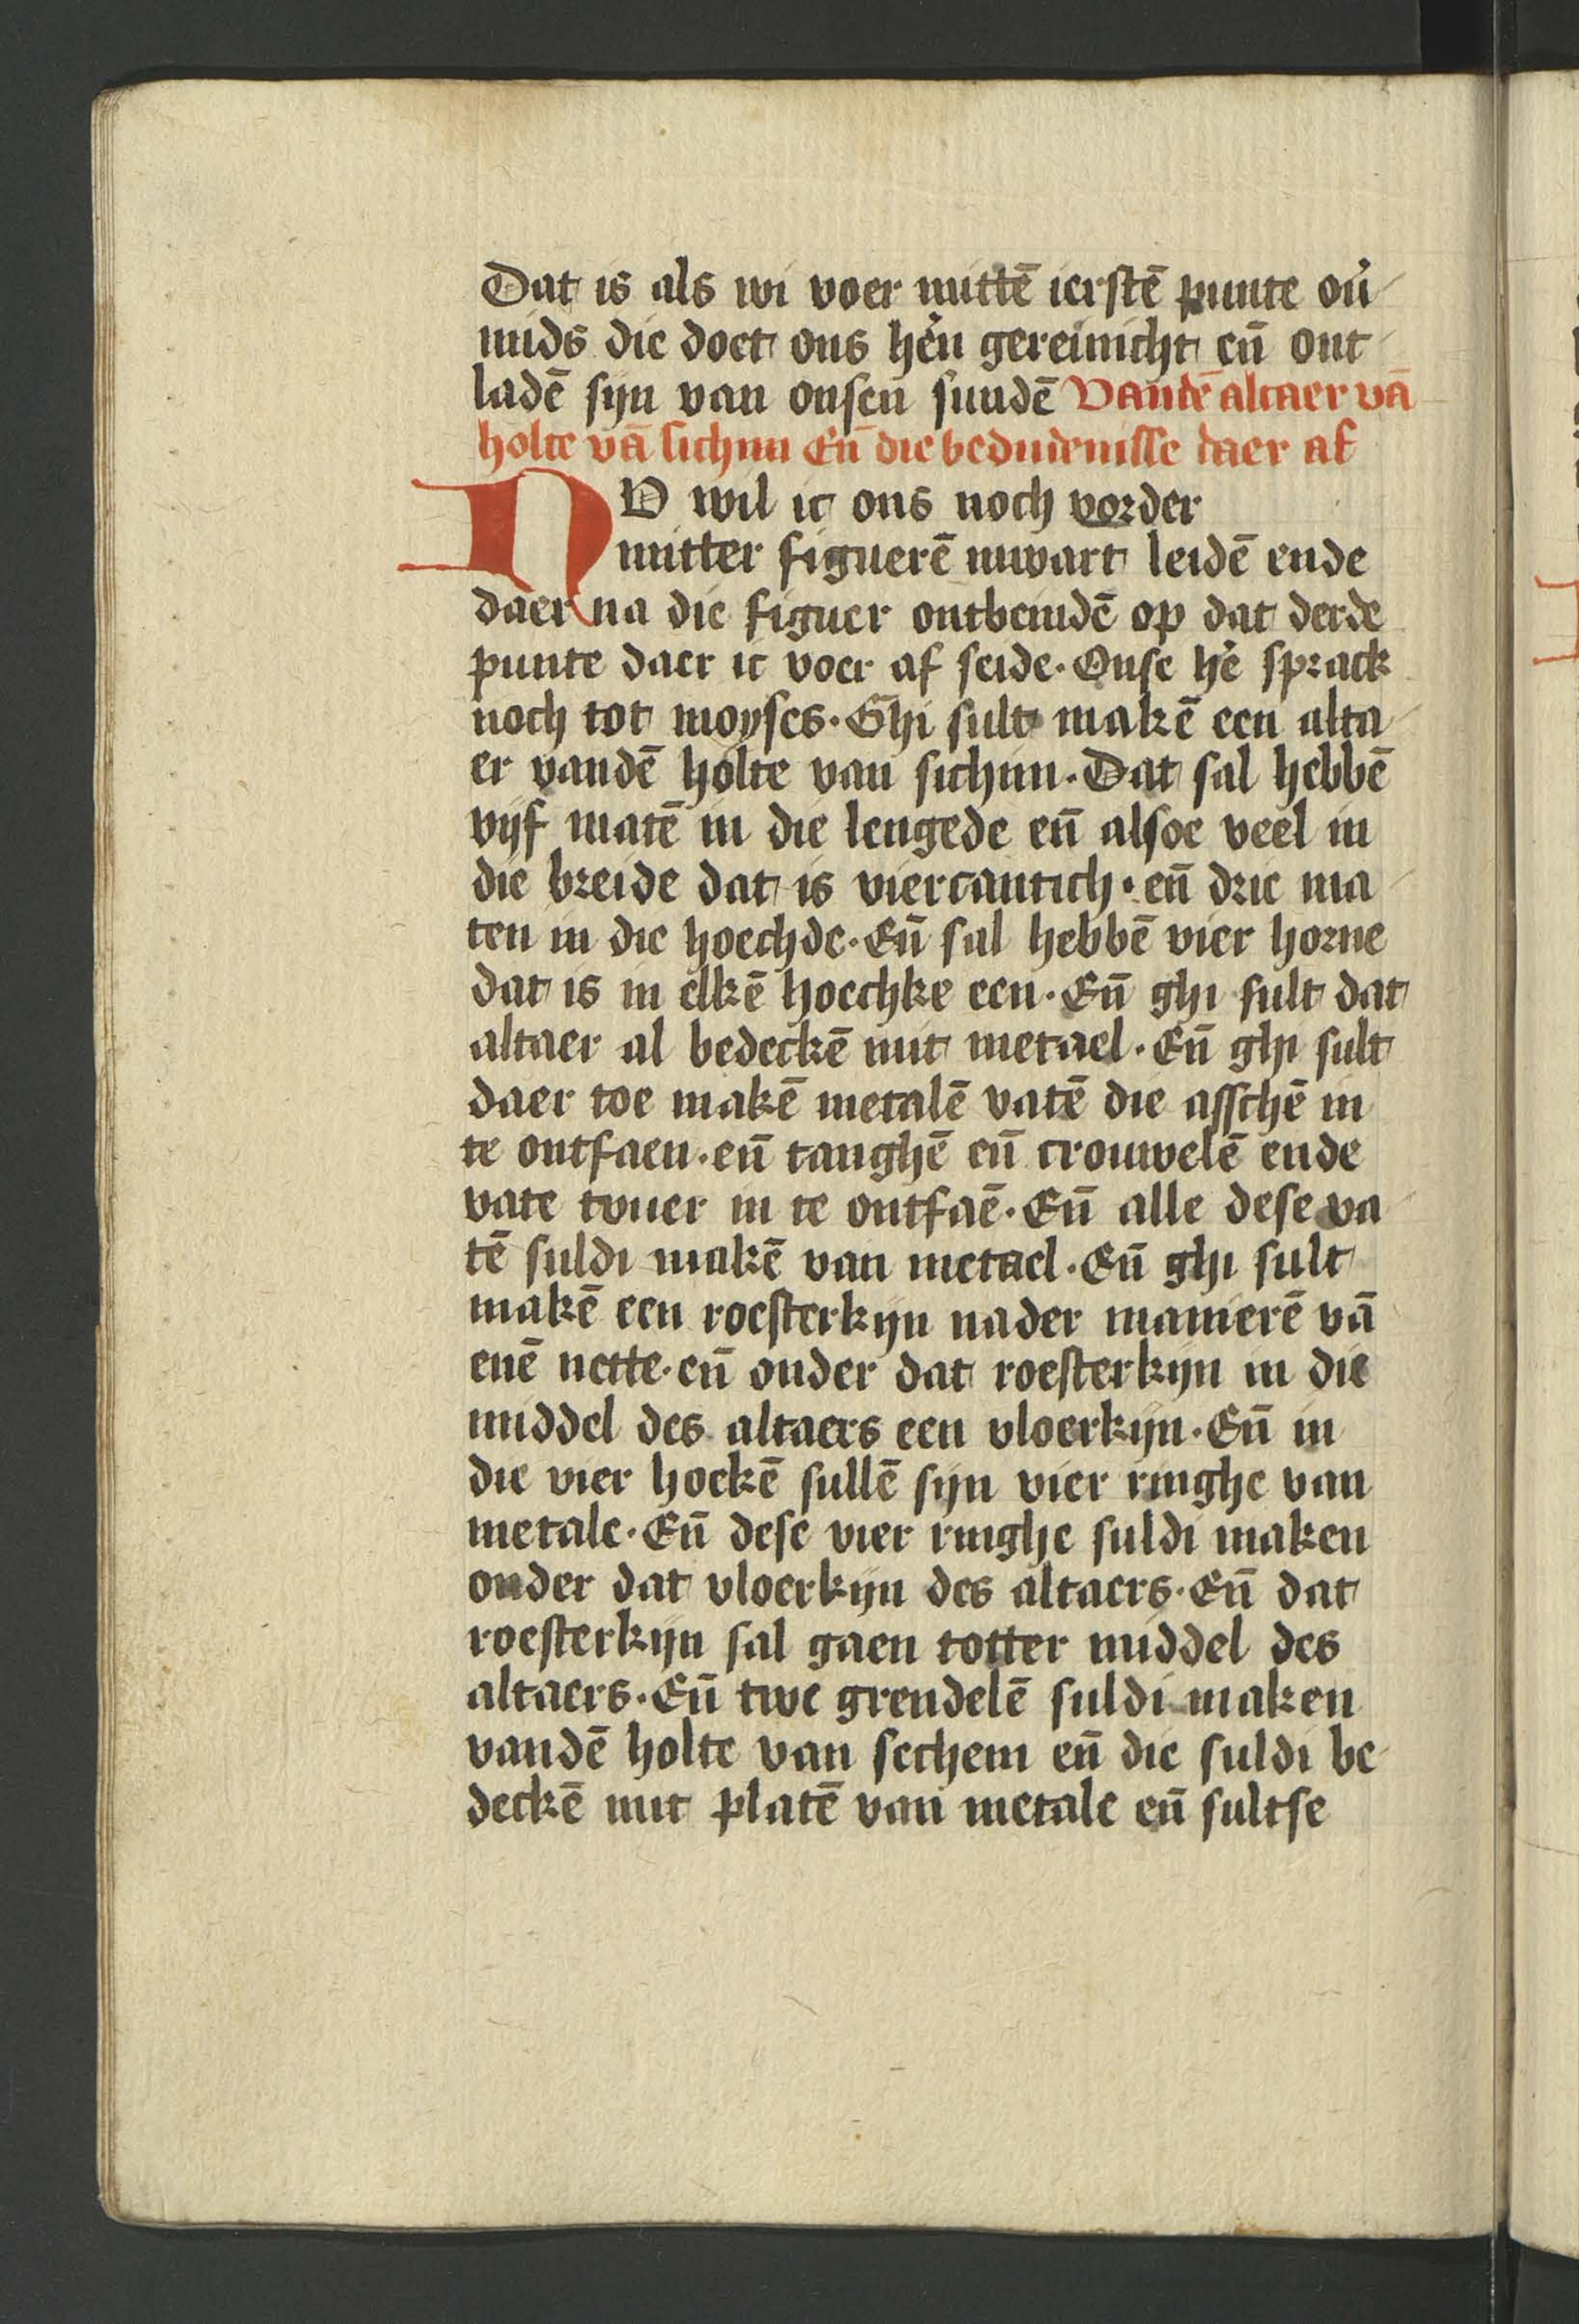 Dat is als wi voer mittē ierstē punte ou̇
mids die doet ons hėn gereinicht en̄ ont
ladē sijn van onsen sundē Vandē altaer vā
holte vā sichim En̄ die bedudenisse daer af
NV wil ic ons noch vorder
mitter figuerē inwart leidē ende
daer na die figuer ontbeindē op dat derde
punte daer ic voer af seide · Onse hė sprack
noch tot moyses · Ghi sult makē een alta
er vandē holte van sichim · Dat sal hebbē
vijf matē in die lengede en̄ alsoe veel in
die breide dat is viercantich · en̄ drie ma
ten in die hoechde · En̄ sal hebbē vier horne
dat is in elkē hoechke een · En̄ ghi sult dat
altaer al bedeckē mit metael · En̄ ghi sult
daer toe makē metalē vatē die asschē in
te ontfaen · en̄ tanghē en̄ crouwelē ende
vate tvuer in te ontfaē · En̄ alle dese va
tē suldi makē van metael · En̄ ghi sult
makē een roesterkijn nader manierē vā
enē nette · en̄ onder dat roesterkijn in die
middel des altaers een vloerkijn · En̄ in
die vier hoekē sullē sijn vier ringhe van
metale · En̄ dese vier ringhe suldi maken
onder dat vloerkijn des altaers · En̄ dat
roesterkijn sal gaen totter middel des
altaers · En̄ twe grendelē suldi maken
vandē holte van sechem en̄ die suldi be
deckē mit platē van metale en̄ sultse